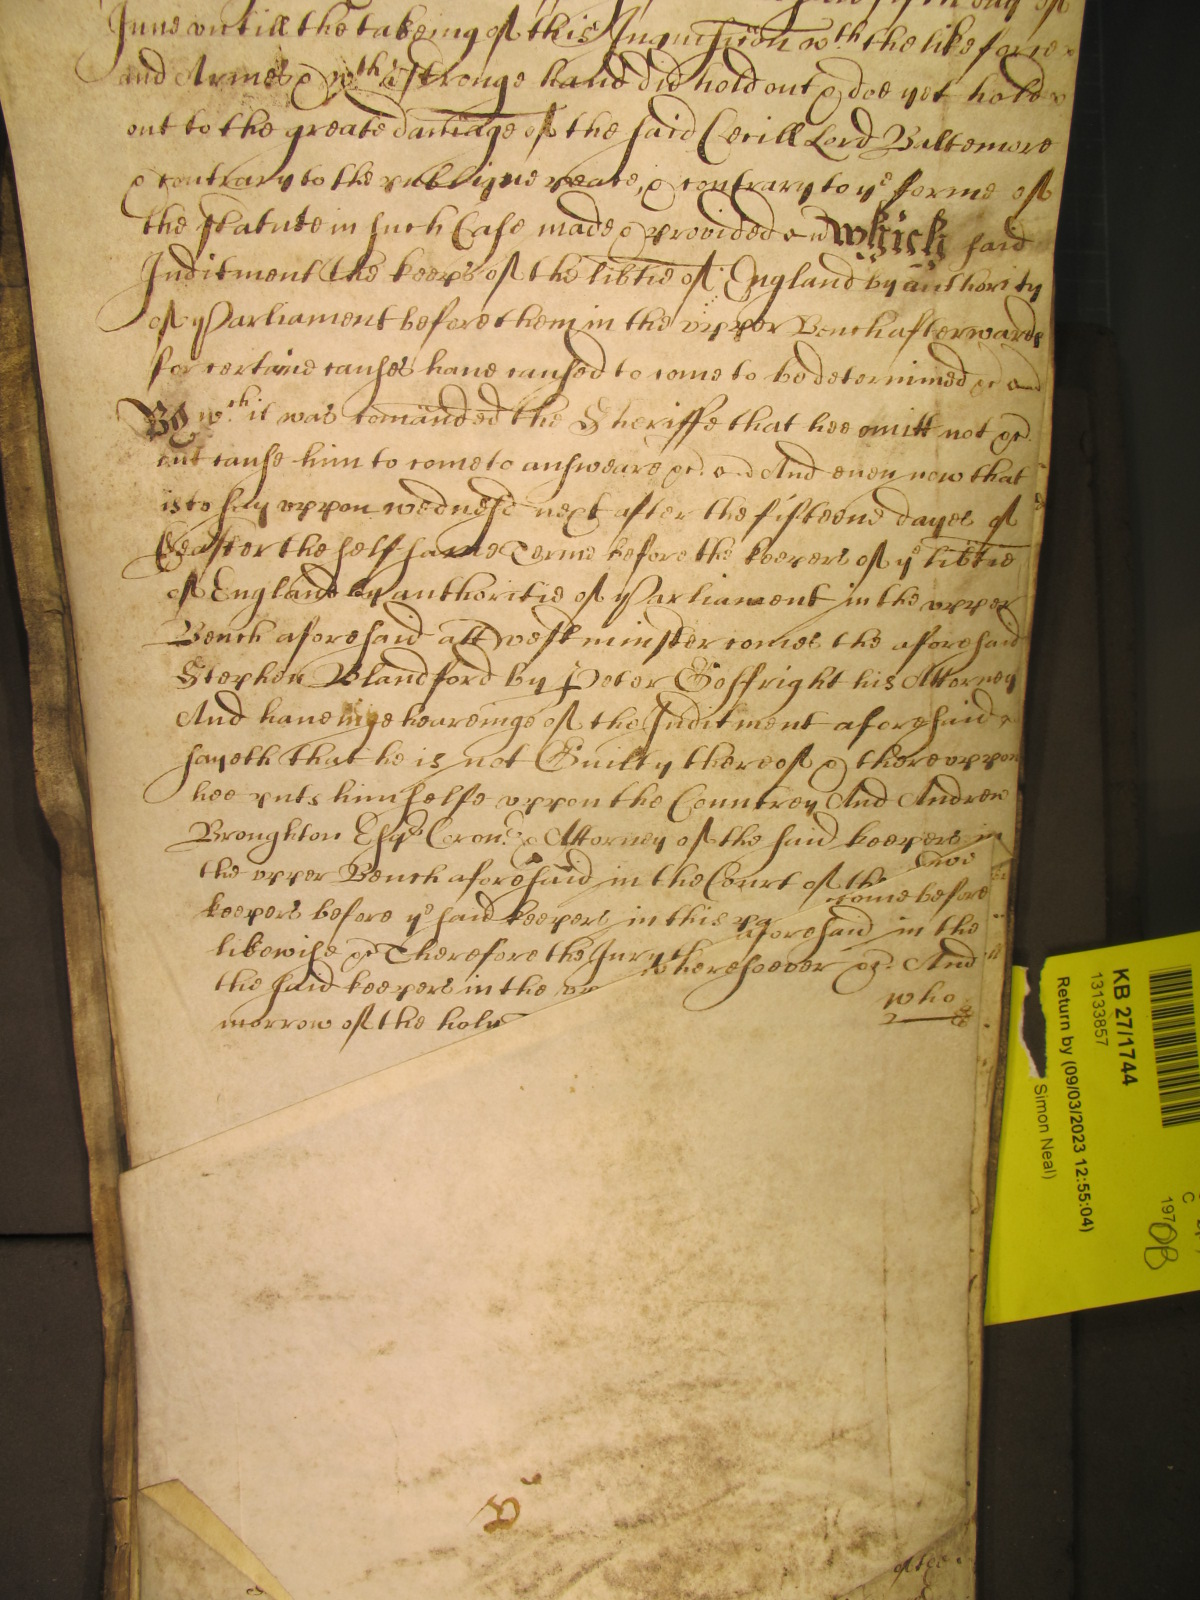 June untill the takeing of this Inquisicion wth the like force
and Armes & wth a stronge hand did hold out & doe yet hold
out to the greate damage of the said Cecill Lord Baltemore
& contrary to the publique peace, & contrary to ye forme of
the statute in such Case made & provided And Which said
Inditment the keeps of the libtie of England by authority
of Parliament before them in the upper Bench afterwards
for certaine causes have caused to come to be determined &c And
By wch it was comanded the Sheriffe that hee omitt not &c.
but cause him to come to answeare &c. And And even now that
is to say uppon wednesd next after the fifteene dayes of
Easter the self same Terme before the keepers of ye libtie
of England by authoritie of Parliament in the upper
Bench aforesaid att Westminster comes the aforesaid
Stephen Blandford by Peter Goffright his Attorney
And haveinge heareinge of the Inditment aforesaid
sayeth that he is not Guilty thereof & thereuppon
hee puts himselfe uppon the Countrey And Andrew
Broughton Esqr Coron & Attorney of the said keepers in
the upper Bench aforesaid in the Court of the
keepers before ye said keepers in this
come before
likewise &c Therefore the Jury
aforesaid in the
the said keepers in the
wheresoever &c. And
morrow of the holy
who
KB 27/1744
13133857
Return by (09/03/2023 12:55:04)
Simon Neal)
C
197
OB